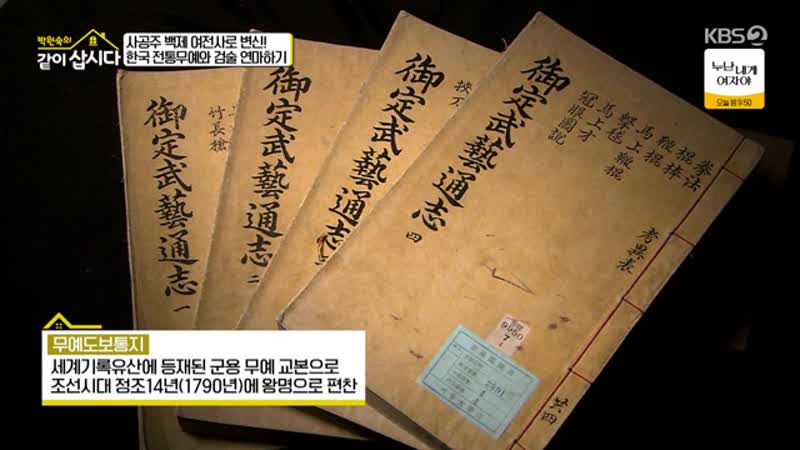 박원숙의
같이 삽시다
사공주 백제 여전사로 변신!!
한국 전통무예와 검술 연마하기
KBS2
누난 내게
여자야
오늘 밤 9:50
御定武藝通志 一
竹長槍
御定武藝通志 二
御定武藝通志
挾刀
御定武藝通志 四
拳法
棍棒
鞭棍
馬上鞭棍
擊毬
馬上才
冠服圖說
考異表
9950
7
2891
1
共四
무예도보통지
세계기록유산에 등재된 군용 무예 교본으로
조선시대 정조14년(1790년)에 왕명으로 편찬